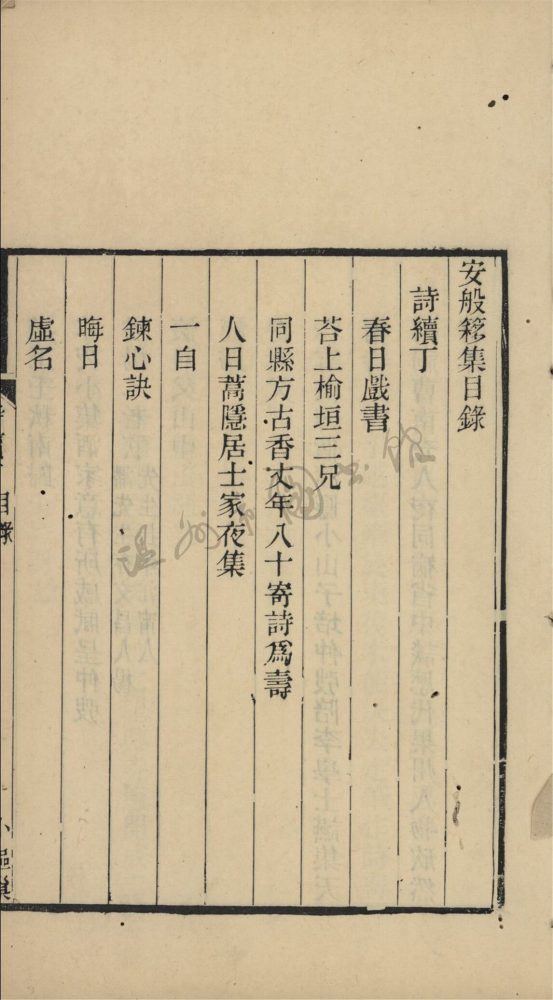 安般簃集目錄
詩續丁
春日戲書
荅上榆垣三兄
同縣方古香丈年八十寄詩爲壽
人日蒿隱居士家夜集
一自
鍊心訣
晦日
虛名
目錄